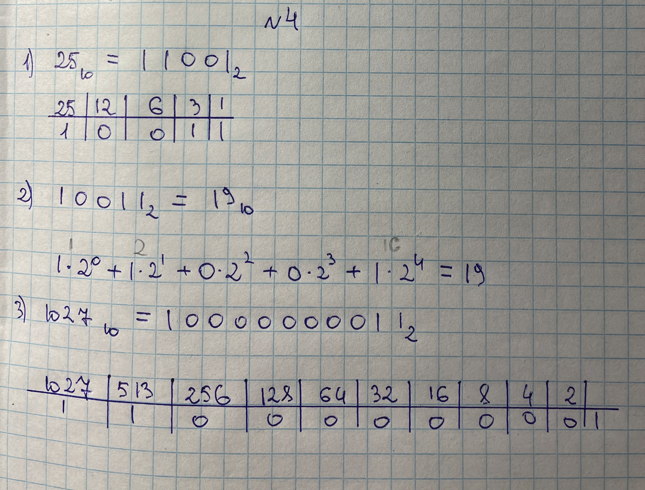 №4
1) 25₁₀ = 11001₂
25 | 12 | 6 | 3 | 1
1 | 0 | 0 | 1 | 1
2) 10011₂ = 19₁₀
1 2 16
1·2⁰ + 1·2¹ + 0·2² + 0·2³ + 1·2⁴ = 19
3) 1027₁₀ = 10000000011₂
1027 | 513 | 256 | 128 | 64 | 32 | 16 | 8 | 4 | 2 |
1 | 1 | 0 | 0 | 0 | 0 | 0 | 0 | 0 | 0 | 1